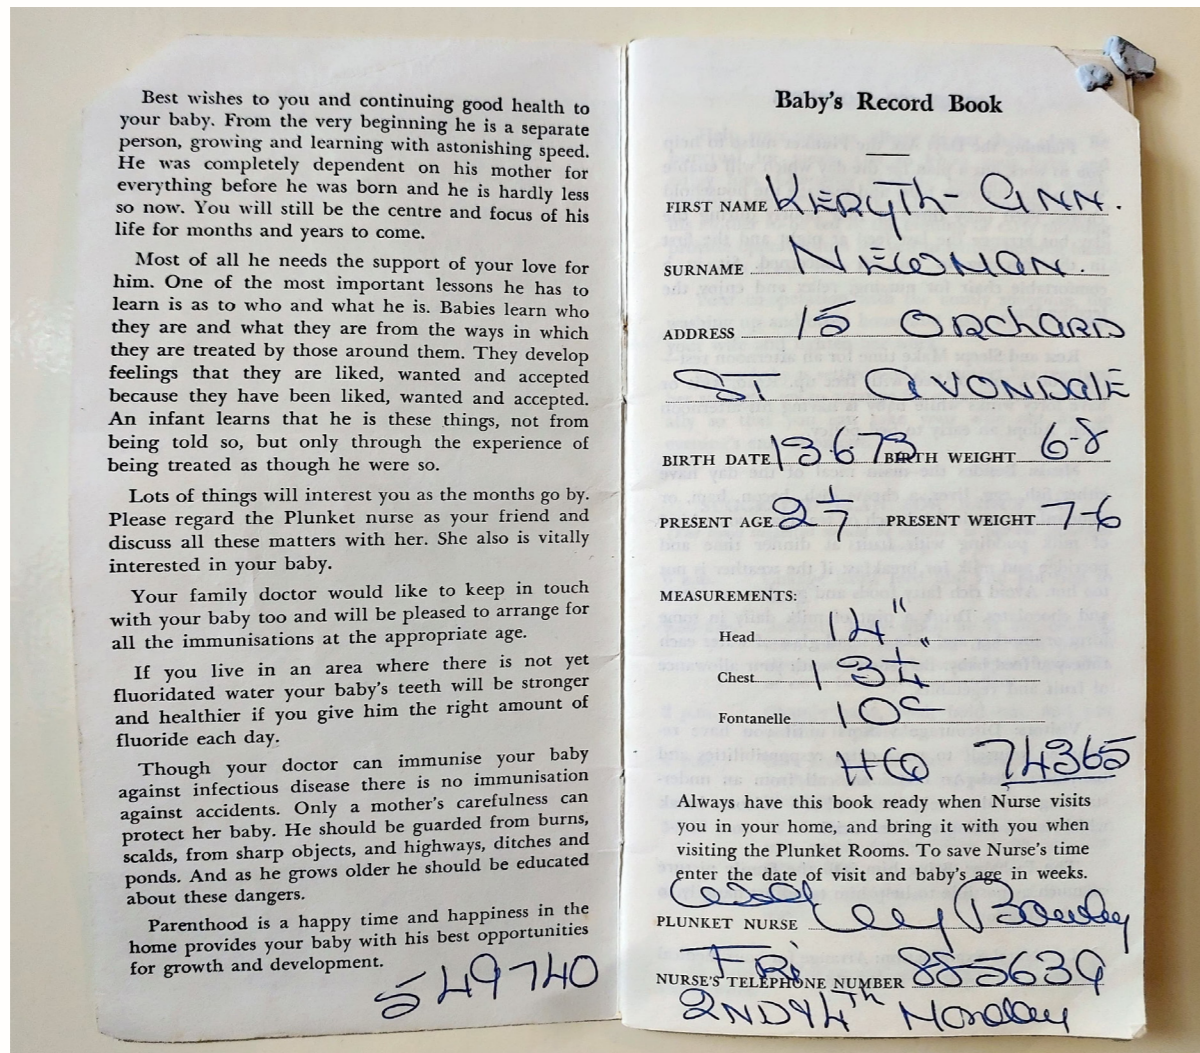 Best wishes to you and continuing good health to
your baby. From the very beginning he is a separate
person, growing and learning with astonishing speed.
He was completely dependent on his mother for
everything before he was born and he is hardly less
so now. You will still be the centre and focus of his
life for months and years to come.
Most of all he needs the support of your love for
him. One of the most important lessons he has to
learn is as to who and what he is. Babies learn who
they are and what they are from the ways in which
they are treated by those around them. They develop
feelings that they are liked, wanted and accepted
because they have been liked, wanted and accepted.
An infant learns that he is these things, not from
being told so, but only through the experience of
being treated as though he were so.
Lots of things will interest you as the months go by.
Please regard the Plunket nurse as your friend and
discuss all these matters with her. She also is vitally
interested in your baby.
Your family doctor would like to keep in touch
with your baby too and will be pleased to arrange for
all the immunisations at the appropriate age.
If you live in an area where there is not yet
fluoridated water your baby's teeth will be stronger
and healthier if you give him the right amount of
fluoride each day.
Though your doctor can immunise your baby
against infectious disease there is no immunisation
against accidents. Only a mother's carefulness can
protect her baby. He should be guarded from burns,
scalds, from sharp objects, and highways, ditches and
ponds. And as he grows older he should be educated
about these dangers.
Parenthood is a happy time and happiness in the
home provides your baby with his best opportunities
for growth and development.
549740
Baby's Record Book
FIRST NAME KERYTH-ANN.
SURNAME NEWMAN.
ADDRESS 15 ORCHARD
ST AVONDALE
BIRTH DATE 13.6.73 BIRTH WEIGHT 6-8
PRESENT AGE 2 1/7 PRESENT WEIGHT 7-6
MEASUREMENTS:
Head 14"
Chest 13 1/4"
Fontanelle 10c
HQ 74365
Always have this book ready when Nurse visits
you in your home, and bring it with you when
visiting the Plunket Rooms. To save Nurse's time
enter the date of visit and baby's age in weeks.
PLUNKET NURSE
Fri
NURSE'S TELEPHONE NUMBER 885639
2ND & 4TH Monday